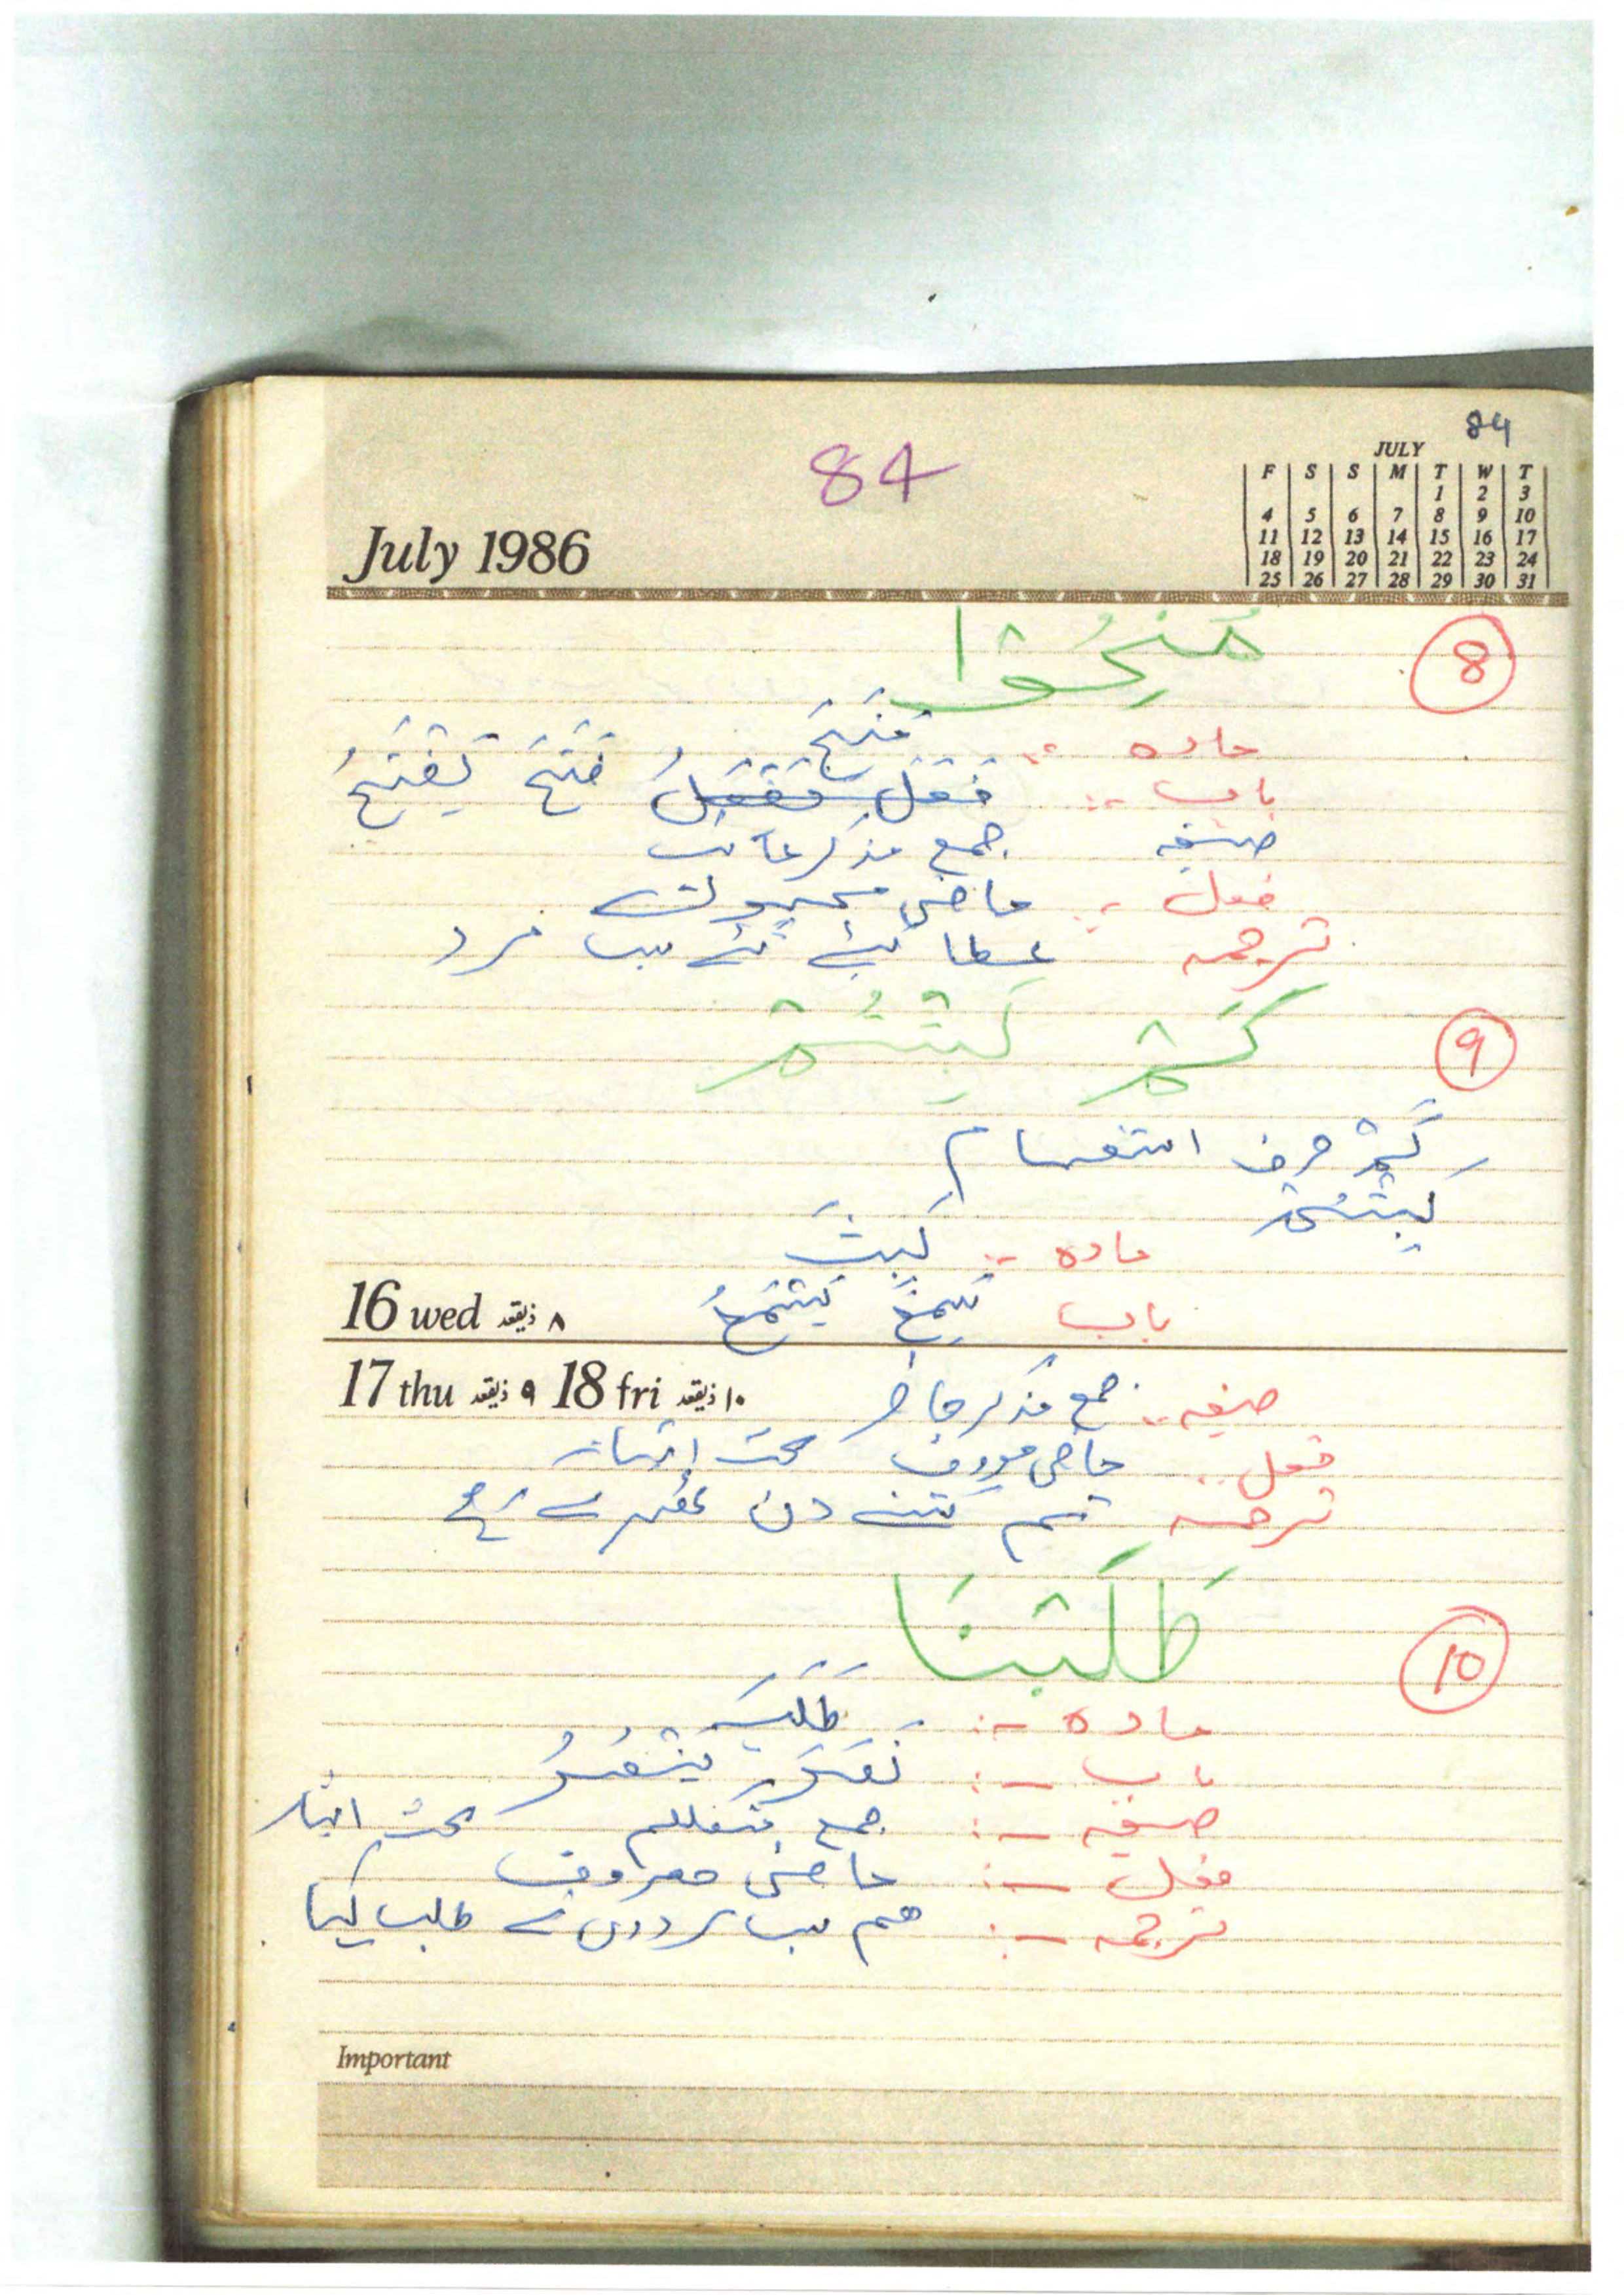 84
84
July 1986
JULY
F S S M T W T
1 2 3
4 5 6 7 8 9 10
11 12 13 14 15 16 17
18 19 20 21 22 23 24
25 26 27 28 29 30 31
8 مُنِحُوْا
مادہ :- مَنَحَ
باب :- فَعَلَ يَفْعَلُ فَتَحَ يَفْتَحُ
صیغہ جمع مذکر غائب
فعل :- ماضی مجہول
ترجمہ عطا کیے گئے سب مرد
9 كَمْ لَبِثْتُمْ
كَمْ حرف استفہام
لَبِثْتُمْ
مادہ :- لَبِثَ
باب سَمِعَ يَسْمَعُ
16 wed ۸ ذیقعد
17 thu ۹ ذیقعد 18 fri ۱۰ ذیقعد
صیغہ :- جمع مذکر حاضر
فعل :- ماضی معروف بحث اثبات
ترجمہ تم کتنے دن ٹھہرے رہے
10 طَلَبْنَا
مادہ :- طَلَبَ
باب :- نَصَرَ يَنْصُرُ
صیغہ :- جمع متکلم بحث اثبات
فعل :- ماضی معروف
ترجمہ :- ہم سب مردوں نے طلب کیا
Important